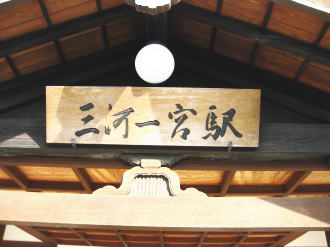 三河一宮駅